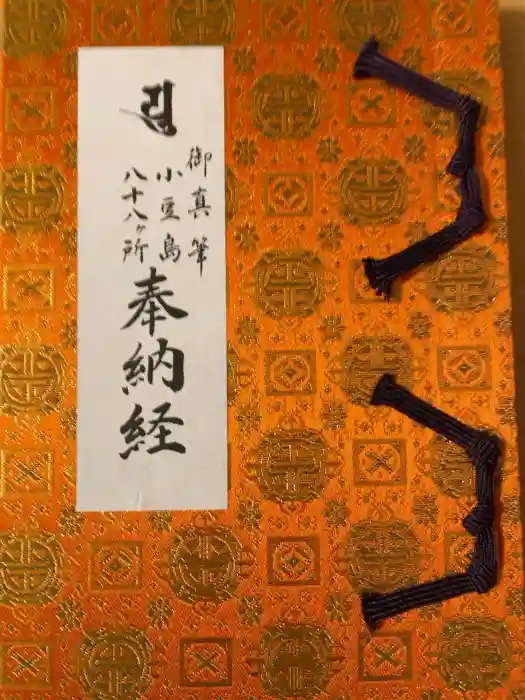 御真筆
小豆島
八十八ヶ所
奉納経